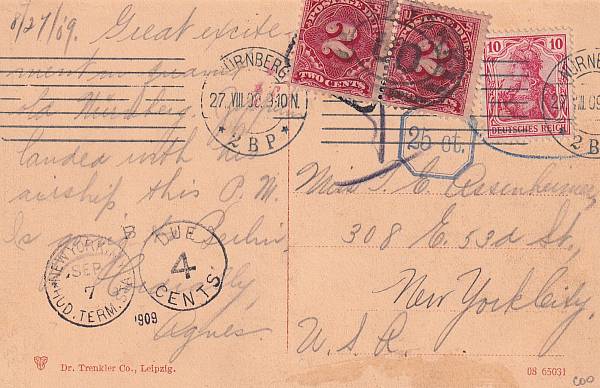 8/27/09. Great excite-
ment in quaint
old Nürnberg.
landed with his
airship this P. M.
Is going to Berlin.
Agnes.
POSTAGE DUE
2
TWO CENTS
POSTAGE DUE
2
10 10
DEUTSCHES REICH
NÜRNBERG
27.VIII.09. 9-10 N.
* 2 B P *
NÜRNBERG
27.VIII.09
2 B P
25 ct.
Miss
308 E. 53d St.,
New York City,
U. S. A.
NEW YORK, N.Y.
SEP
7
HUD. TERM. STA.
1909
B
DUE
4
CENTS
Dr. Trenkler Co., Leipzig.
08 65031